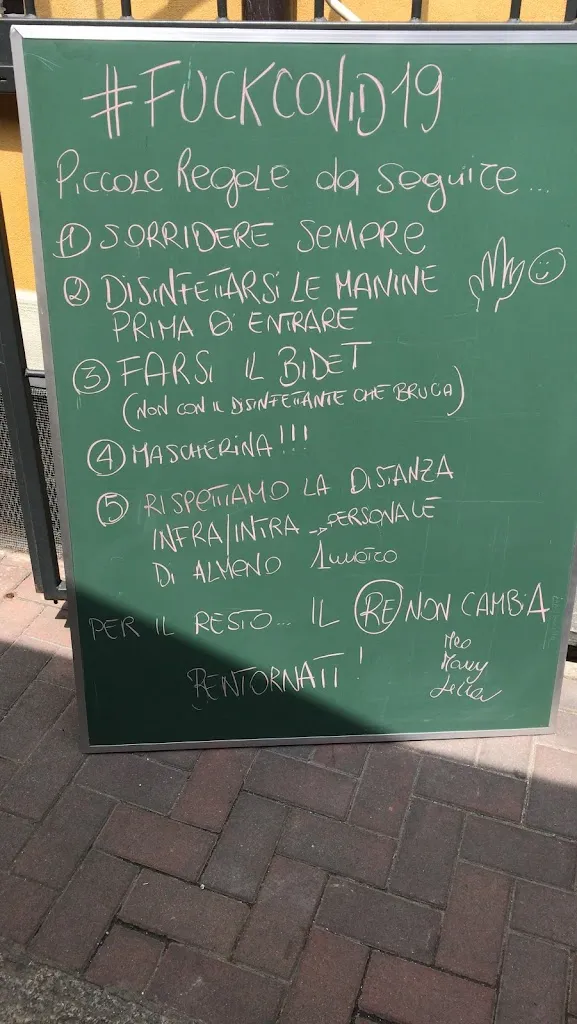 #FUCKCOVID19
PICCOLE REGOLE da seguire...
1 SORRIDERE SEMPRE
2 DISINFETTARSI LE MANINE
PRIMA DI ENTRARE
3 FARSI IL BIDET
(NON CON IL DISINFETTANTE CHE BRUCIA)
4 MASCHERINA!!!
5 RISPETTIAMO LA DISTANZA
INFRA/INTRA...PERSONALE
DI ALMENO 1 metro
PER IL RESTO... IL RE NON CAMBIA
BENTORNATI!
Meo
Mary